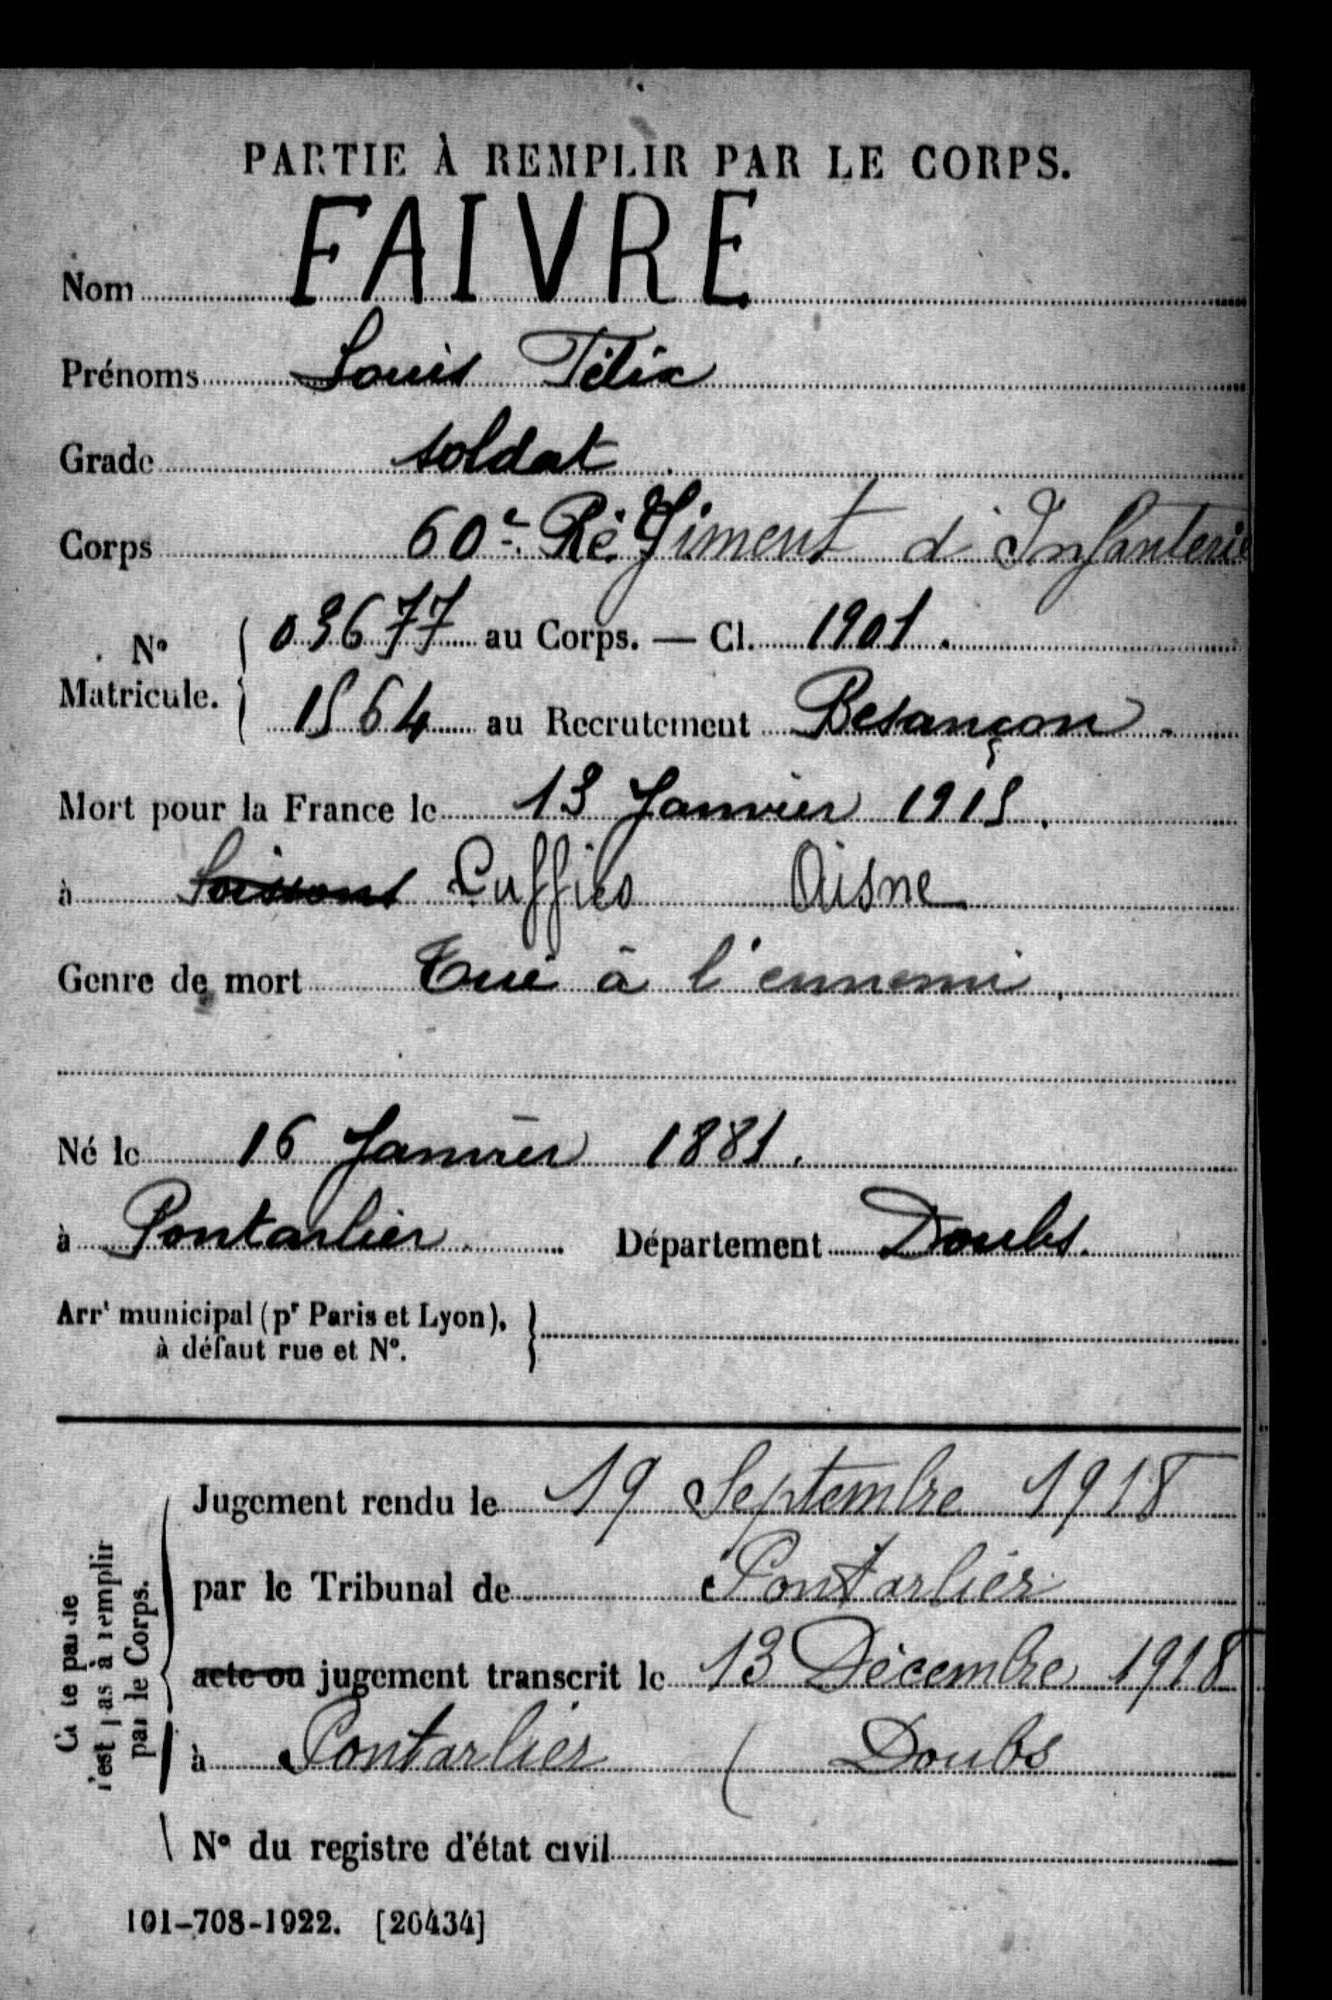 PARTIE À REMPLIR PAR LE CORPS.
Nom FAIVRE
Prénoms Louis Félix
Grade soldat
Corps 60e Régiment d'Infanterie
N° Matricule. 03677 au Corps. — Cl. 1901.
1564 au Recrutement Besançon.
Mort pour la France le 13 Janvier 1915.
à Soissons Cuffies Aisne
Genre de mort Tué à l'ennemi.
Né le 16 Janvier 1881.
à Pontarlier Département Doubs.
Arrt municipal (pr Paris et Lyon),
à défaut rue et N°.
Cette partie
n'est pas à remplir
par le Corps.
Jugement rendu le 19 Septembre 1918
par le Tribunal de Pontarlier
acte ou jugement transcrit le 13 Décembre 1918
à Pontarlier ( Doubs
N° du registre d'état civil
101-708-1922. [20434]